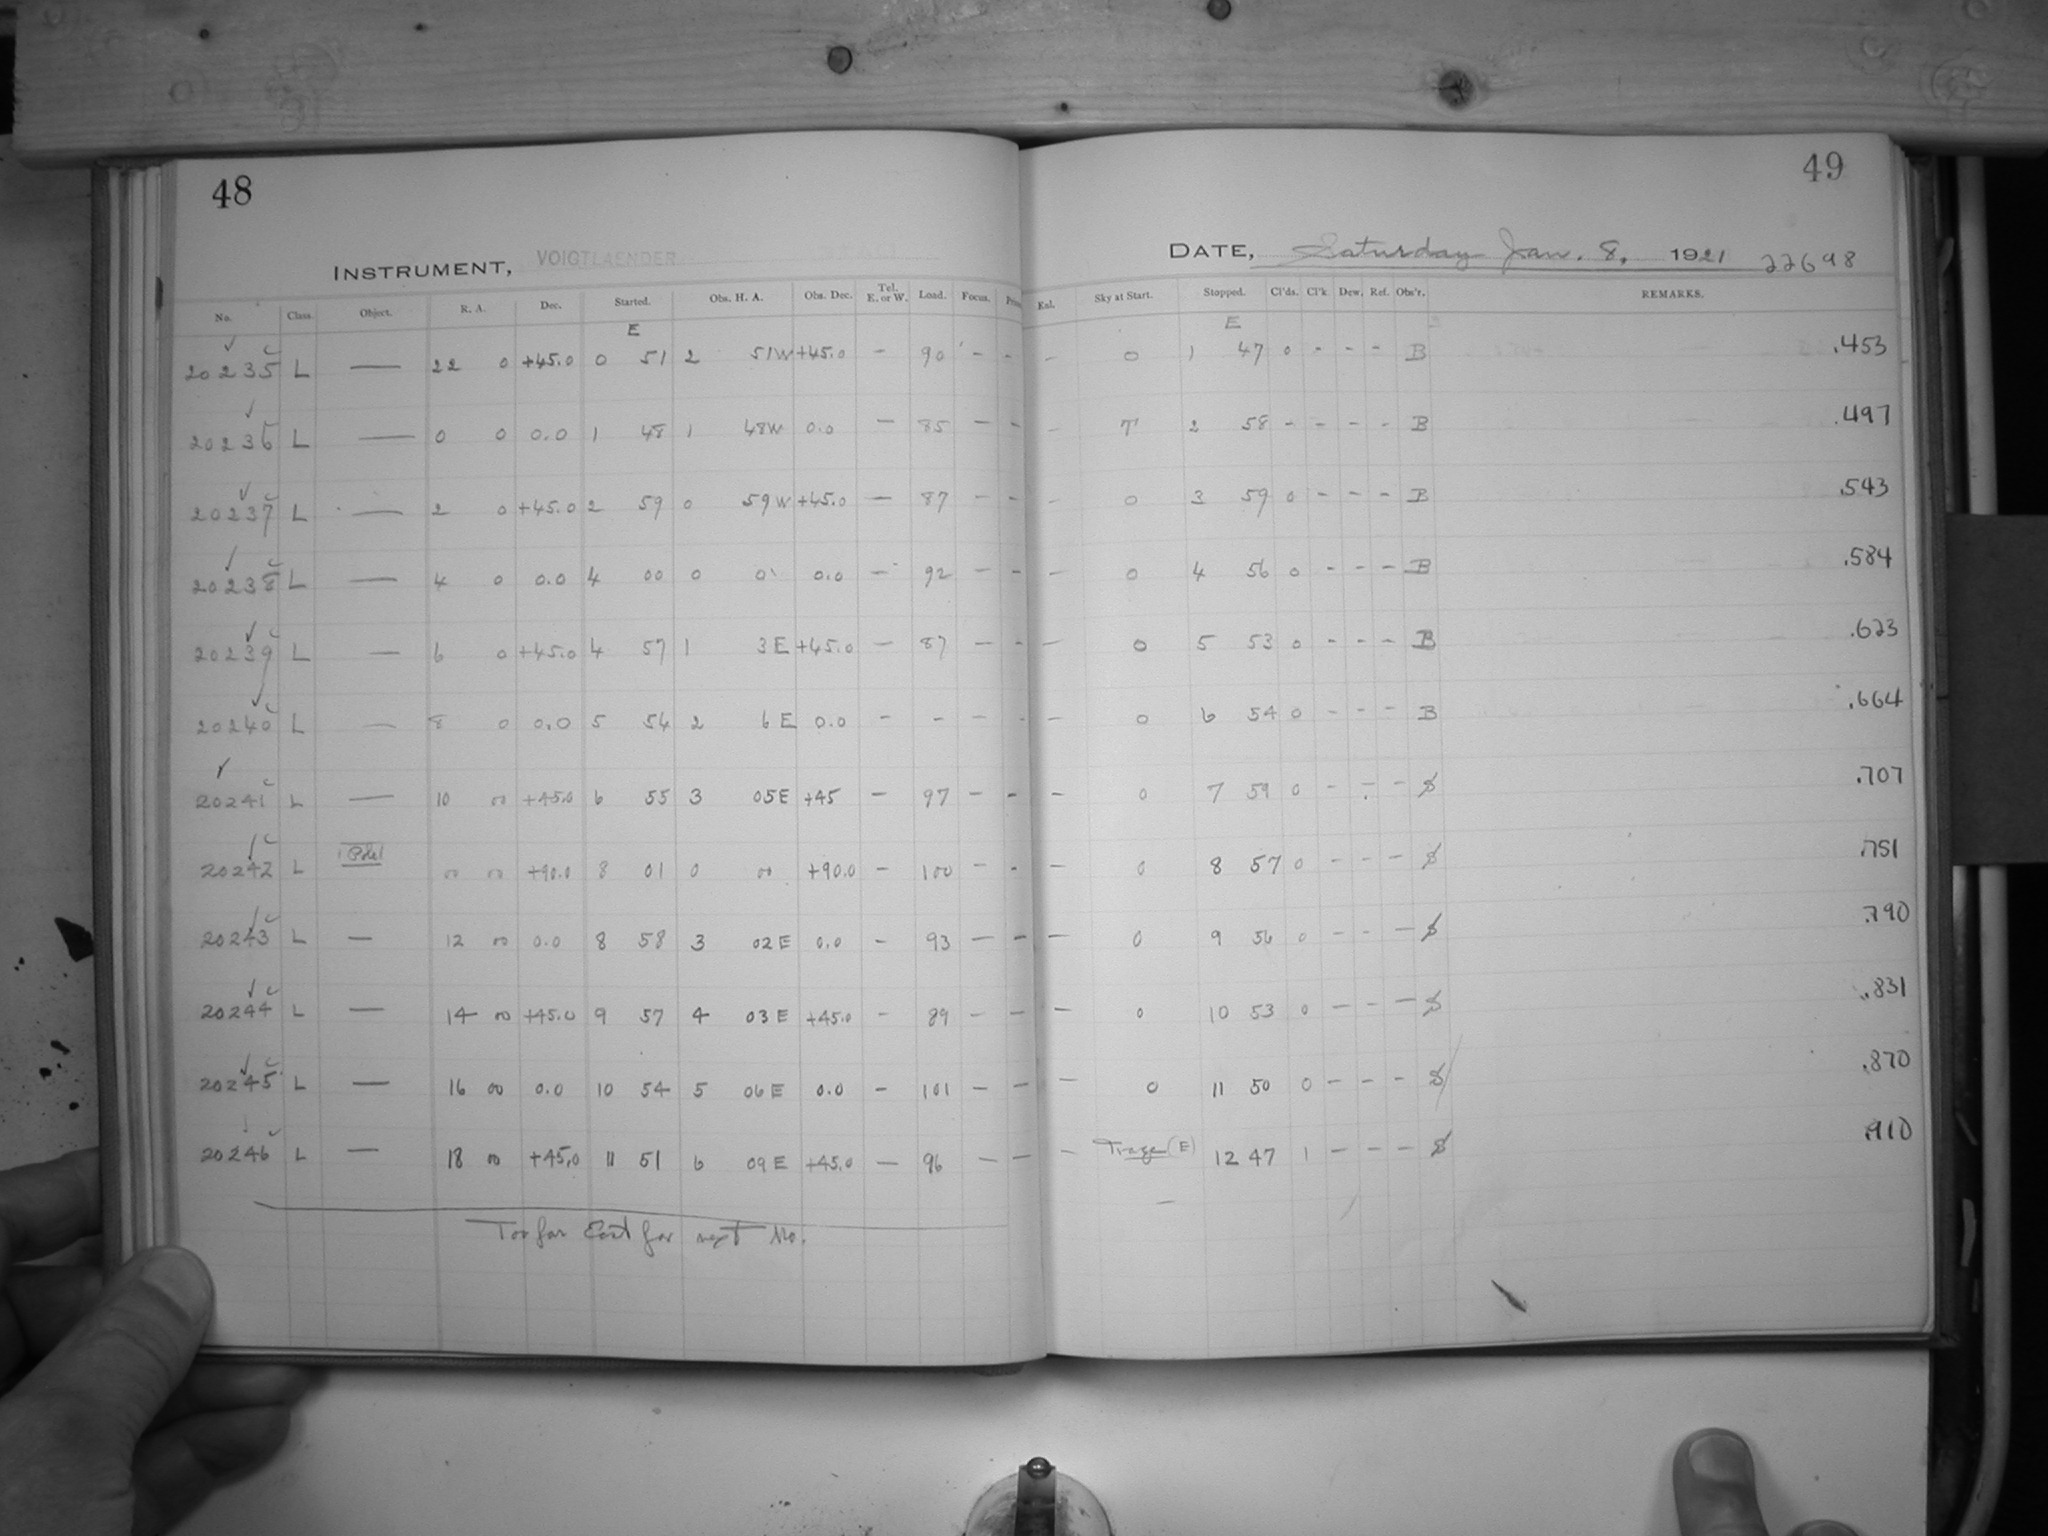 48
INSTRUMENT, VOIGTLAENDER
No. Class. Object. R. A. Dec. Started. Obs. H. A. Obs. Dec. Tel. E. or W. Load. Focus.
E
20235 L — 22 0 +45.0 0 51 2 51W +45.0 - 90 - -
20236 L — 0 0 0.0 1 48 1 48W 0.0 - 85 - -
20237 L — 2 0 +45.0 2 59 0 59W +45.0 - 87 - -
20238 L — 4 0 0.0 4 00 0 0 0.0 - 92 - -
20239 L — 6 0 +45.0 4 57 1 3E +45.0 - 87 - -
20240 L — 8 0 0.0 5 54 2 6E 0.0 - - - -
20241 L — 10 00 +45.0 6 55 3 05E +45 - 97 - -
20242 L Pole 00 00 +90.0 8 01 0 00 +90.0 - 100 - -
20243 L — 12 00 0.0 8 58 3 02E 0.0 - 93 - -
20244 L — 14 00 +45.0 9 57 4 03E +45.0 - 89 - -
20245 L — 16 00 0.0 10 54 5 06E 0.0 - 101 - -
20246 L — 18 00 +45.0 11 51 6 09E +45.0 - 96 - -
Too far East for next No.
49
DATE, Saturday Jan. 8, 1921 22698
Exl. Sky at Start. Stopped. Cl'ds. Cl'k. Dew. Ref. Obs'r. REMARKS.
E
- 0 1 47 0 - - - B .453
- T 2 58 - - - - B .497
- 0 3 59 0 - - - B .543
- 0 4 56 0 - - - B .584
- 0 5 53 0 - - - B .623
- 0 6 54 0 - - - B .664
- 0 7 59 0 - - - S .707
- 0 8 57 0 - - - S .751
- 0 9 56 0 - - - S .790
- 0 10 53 0 - - - S .831
- 0 11 50 0 - - - S .870
- (E) 12 47 1 - - - S .910